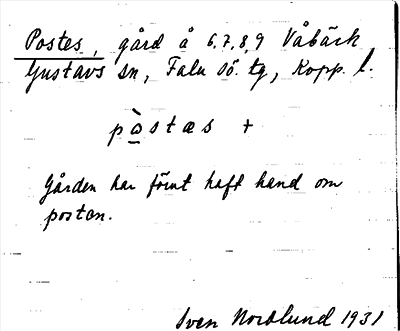 Postes, gård å 6,7,8,9 Våbäck
Gustavs sn, Falu sö. tg, Kopp. l.
pòstæs +
Gården har förut haft hand om
posten.
Sven Nordlund 1931